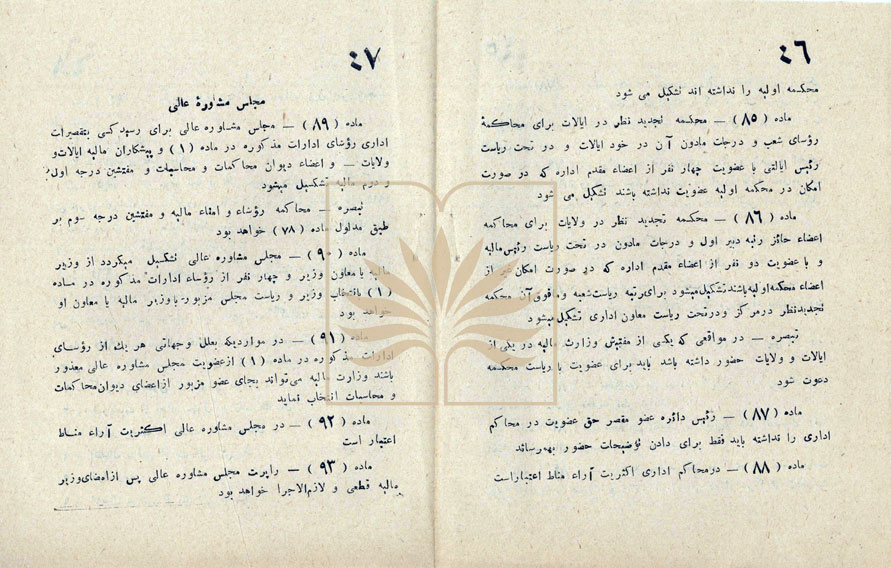 ٤٦
محکمه اولیه را نداشته اند تشکیل می شود
ماده (٨٥) — محکمه تجدید نظر در ایالات برای محاکمهٔ
رؤسای شعب و درجات مادون آن در خود ایالات و در تحت ریاست
رئیس ایالتی با عضویت چهار نفر از اعضاء مقدم اداره که در صورت
امکان در محکمه اولیه عضویت نداشته باشند تشکیل می شود
ماده (٨٦) — محکمه تجدید نظر در ولایات برای محاکمه
اعضاء حائز رتبه دبیر اول و درجات مادون در تحت ریاست رئیس مالیه
و با عضویت دو نفر از اعضاء مقدم اداره که در صورت امکان غیر از
اعضاء محکمه اولیه باشند تشکیل میشود برای رتبه ریاست شعبه و مافوق آن محکمه
تجدید نظر در مرکز و در تحت ریاست معاون اداری تشکیل میشود
تبصره — در مواقعی که یکی از مفتشین وزارت مالیه در یکی از
ایالات و ولایات حضور داشته باشد باید برای عضویت یا ریاست محکمه
دعوت شود
ماده (٨٧) — رئیس دائره عضو مقصر حق عضویت در محاکم
اداری را نداشته باید فقط برای دادن توضیحات حضور بهمرساند
ماده (٨٨) — در محاکم اداری اکثریت آراء مناط اعتبار است
٤٧
مجلس مشاورهٔ عالی
ماده (٨٩) — مجلس مشاوره عالی برای رسیدگی بتقصیرات
اداری رؤسای ادارات مذکوره در ماده (١) و پیشکاران مالیه ایالات و
ولایات — و اعضاء دیوان محاکمات و محاسبات و مفتشین درجه اول
و دوم مالیه تشکیل میشود
تبصره — محاکمه رؤساء و امناء مالیه و مفتشین درجه سوم بر
طبق مدلول ماده (٧٨) خواهد بود
ماده (٩٠) — مجلس مشاوره عالی تشکیل میگردد از وزیر
مالیه یا معاون وزیر و چهار نفر از رؤساء ادارات مذکوره در ماده
(١) بانتخاب وزیر و ریاست مجلس مزبور با وزیر مالیه یا معاون او
خواهد بود
ماده (٩١) — در مواردیکه بعلل وجهاتی هر یك از رؤسای
ادارات مذکوره در ماده (١) از عضویت مجلس مشاوره عالی معذور
باشند وزارت مالیه می تواند بجای عضو مزبور از اعضای دیوان محاکمات
و محاسبات انتخاب نماید
ماده (٩٢) — در مجلس مشاوره عالی اکثریت آراء مناط
اعتبار است
ماده (٩٣) — راپرت مجلس مشاوره عالی پس از امضای وزیر
مالیه قطعی و لازم الاجرا خواهد بود